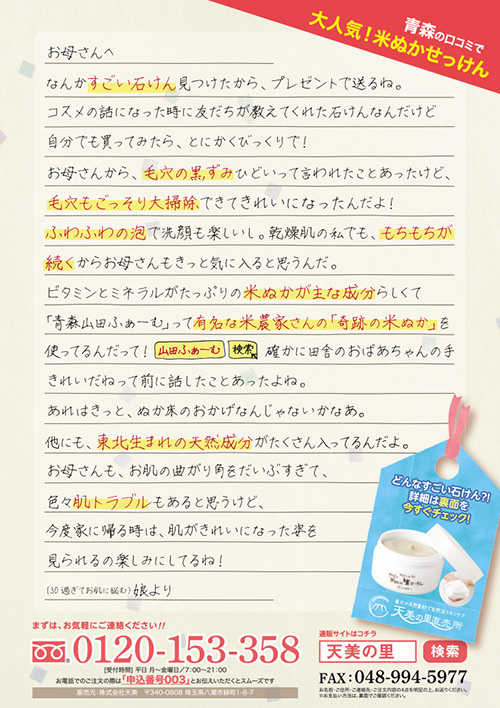 青森の口コミで
大人気！米ぬかせっけん
お母さんへ
なんかすごい石けん見つけたから、プレゼントで送るね。
コスメの話になった時に友だちが教えてくれた石けんなんだけど
自分でも買ってみたら、とにかくびっくりで！
お母さんから、毛穴の黒ずみひどいって言われたことあったけど、
毛穴もごっそり大掃除できてきれいになったんだよ！
ふわふわの泡で洗顔も楽しいし。乾燥肌の私でも、もちもちが
続くからお母さんもきっと気に入ると思うんだ。
ビタミンとミネラルがたっぷりの米ぬかが主な成分らしくて
「青森山田ふぁーむ」って有名な米農家さんの「奇跡の米ぬか」を
使ってるんだって！ 山田ふぁーむ 検索 確かに田舎のおばあちゃんの手
きれいだねって前に話したことあったよね。
あれはきっと、ぬか床のおかげなんじゃないかなあ。
他にも、東北生まれの天然成分がたくさん入ってるんだよ。
お母さんも、お肌の曲がり角をだいぶすぎて、
色々肌トラブルもあると思うけど、
今度家に帰る時は、肌がきれいになった姿を
見られるの楽しみにしてるね！
(30過ぎてお肌に悩む) 娘より
どんなすごい石けん?!
詳細は裏面を
今すぐチェック！
天美の里直売所
まずは、お気軽にご連絡ください!!
0120-153-358
[受付時間] 平日 月〜金曜日／7:00〜21:00
お電話でのご注文の際は「申込番号003」とお伝えいただくとスムーズです
販売元：株式会社天美 〒340-0808 埼玉県八潮市緑町1-8-7
通販サイトはコチラ
天美の里 検索
FAX：048-994-5977
お名前・ご住所・ご連絡先・ご注文内容の4点を明記の上、お送りください。
※お支払い方法は、裏面でご確認ください。